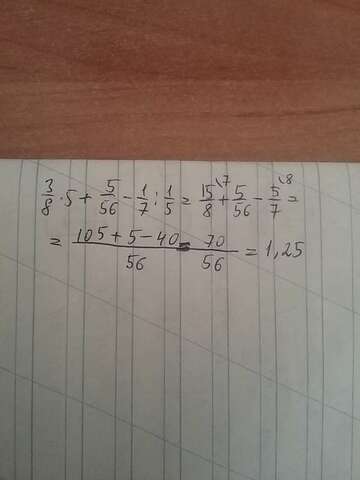 3/8 · 5 + 5/56 − 1/7 : 1/5 = 15/8 \7 + 5/56 − 5/7 \8 =
= (105 + 5 − 40)/56 = 70/56 = 1,25